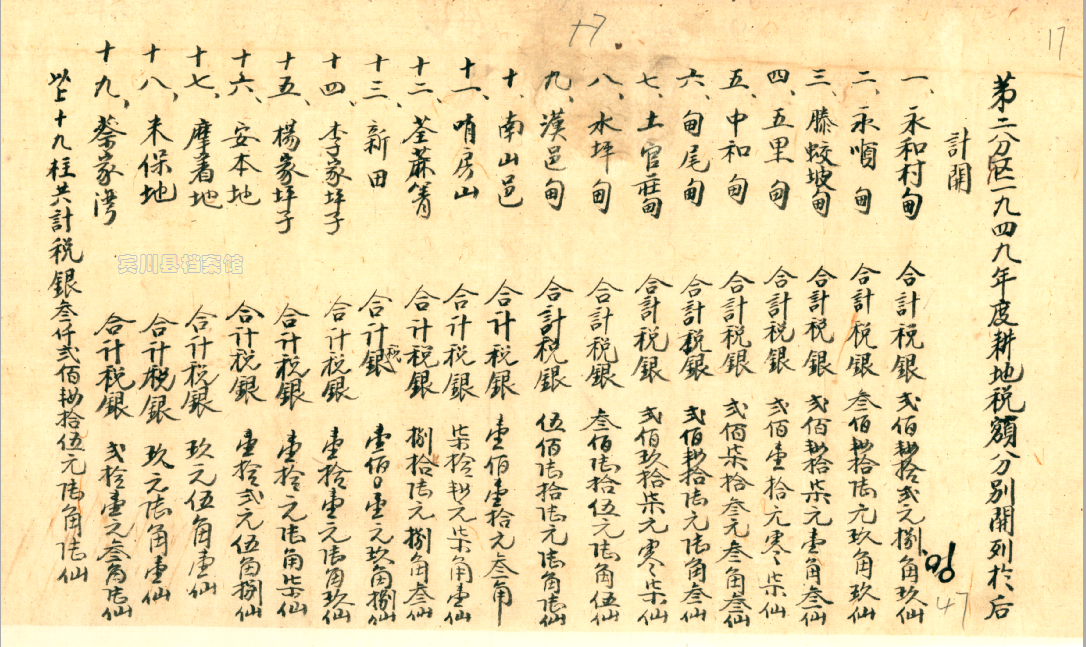 17
17
第二分区一九四九年度耕地税額分别開列於后
計開
一、永和村甸 合計税銀弍佰肆拾弍元捌角玖仙
二、永順甸 合計税銀叁佰肆拾陆元玖角玖仙
三、滕蛟坡甸 合計税銀弍佰肆拾柒元壹角叁仙
四、五里甸 合計税銀弍佰壹拾元零柒仙
五、中和甸 合計税銀弍佰柒拾叁元叁角叁仙
六、甸尾甸 合計税銀弍佰肆拾陆元陆角叁仙
七、土官莊甸 合計税銀弍佰玖拾柒元零柒仙
八、水坪甸 合計税銀叁佰陆拾伍元陆角伍仙
九、漢邑甸 合計税銀伍佰陆拾陆元陆角陆仙
十、南山邑 合计税銀壹佰壹拾元叁角
十一、哨房山 合计税銀柒拾肆元柒角壹仙
十二、荃蔴箐 合计税銀捌拾陆元捌角叁仙
十三、新田 合计税銀壹佰0壹元玖角捌仙
十四、李家坪子 合计税銀壹拾壹元陆角玖仙
十五、楊家坪子 合计税銀壹拾元陆角柒仙
十六、安本地 合计税銀壹拾弍元伍角捌仙
十七、摩着地 合计税銀玖元伍角壹仙
十八、米保地 合计税銀玖元陆角壹仙
十九、蔡家湾 合计税銀弍拾壹元叁角陆仙
以上十九柱共計税銀叁仟弍佰肆拾伍元陆角陆仙
47
宾川县档案馆